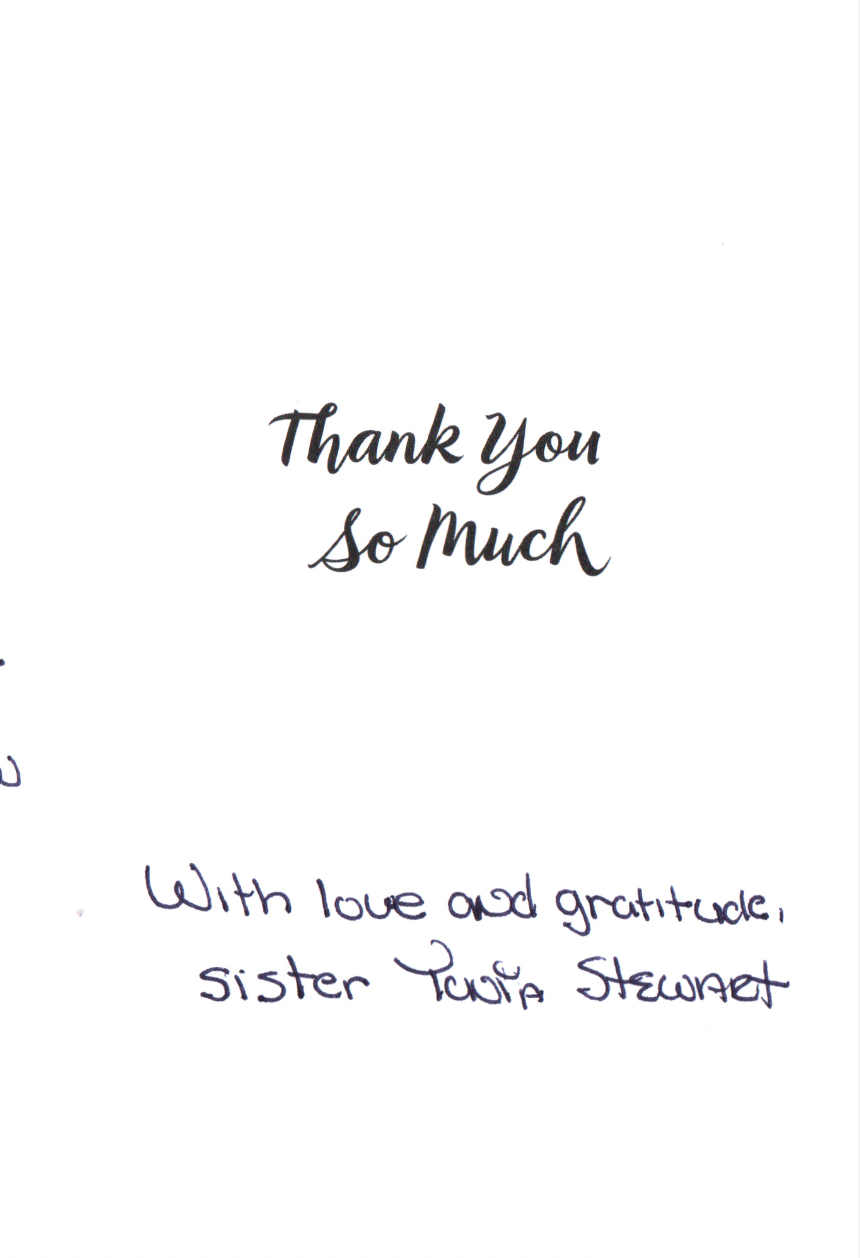 Thank You
So Much
With love and gratitude,
sister Tania Stewart